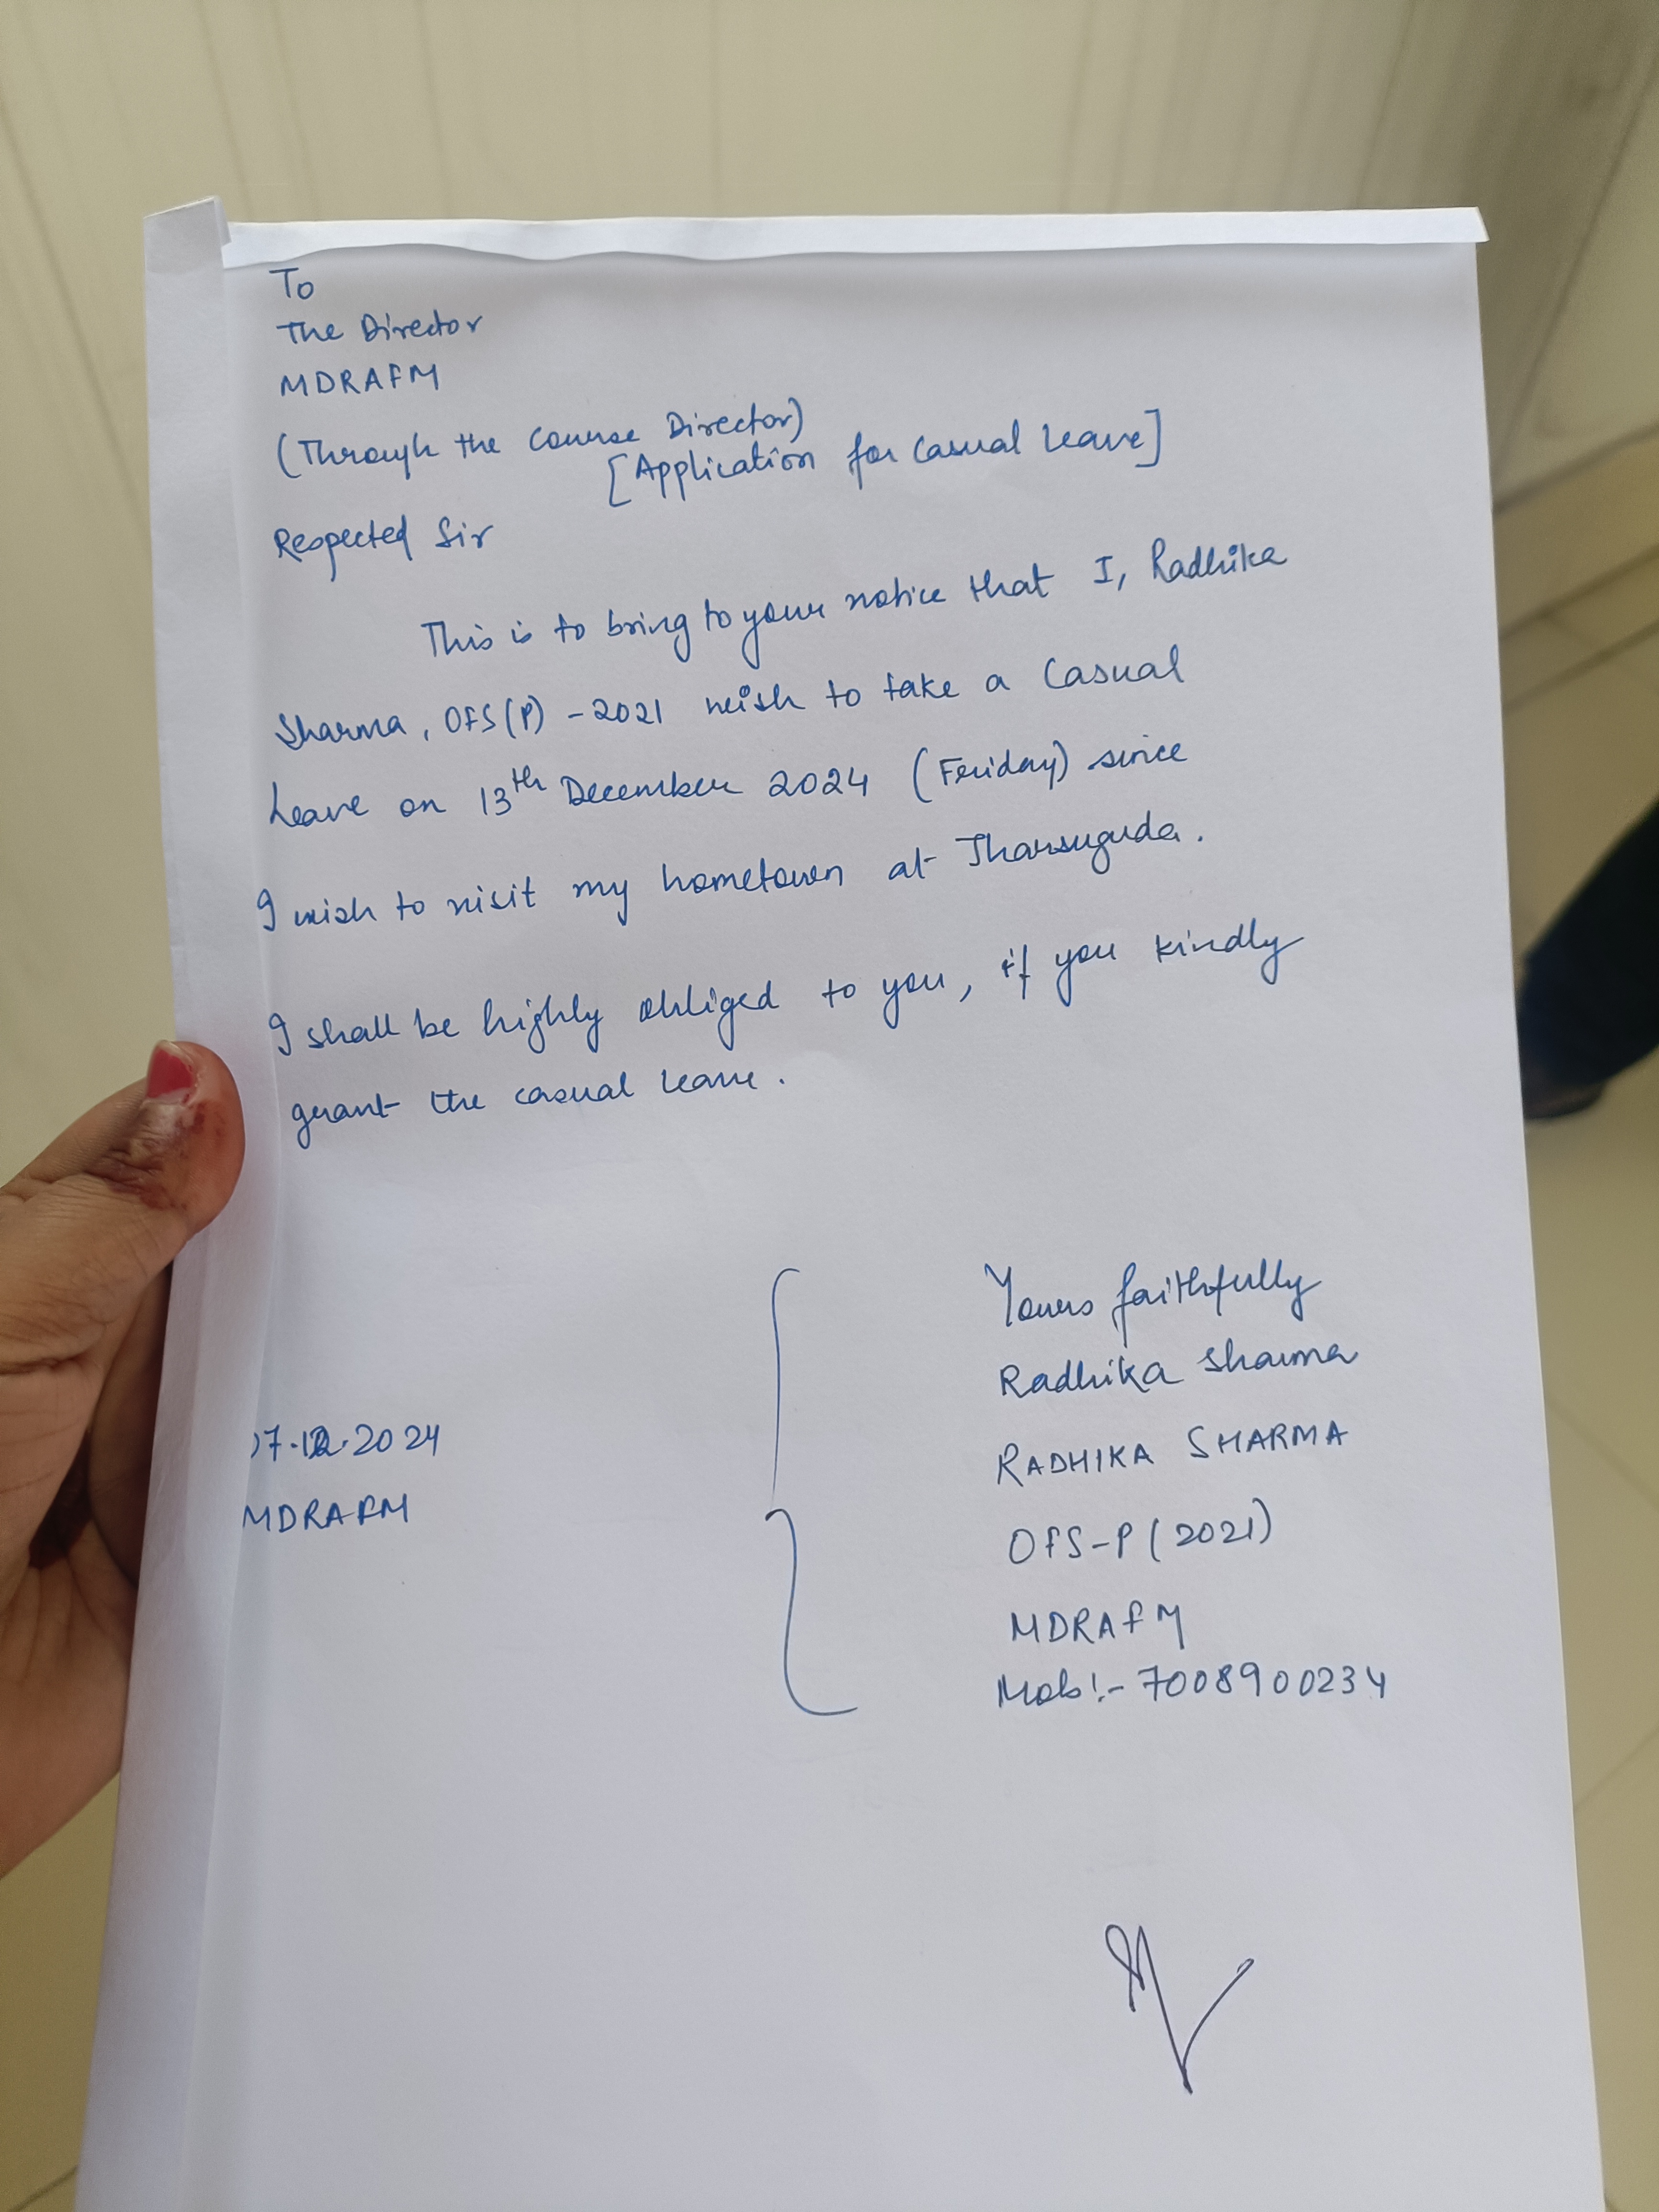 To
The Director
MDRAFM
(Through the Course Director)
[Application for Casual Leave]
Respected Sir
This is to bring to your notice that I, Radhika
Sharma, OFS(P) - 2021 wish to take a Casual
Leave on 13th December 2024 (Friday) since
I wish to visit my hometown at Jharsuguda.
I shall be highly obliged to you, if you kindly
grant the casual leave.
Yours faithfully
Radhika Sharma
RADHIKA SHARMA
OFS-P (2021)
MDRAFM
Mob:- 7008900234
07.12.2024
MDRAFM